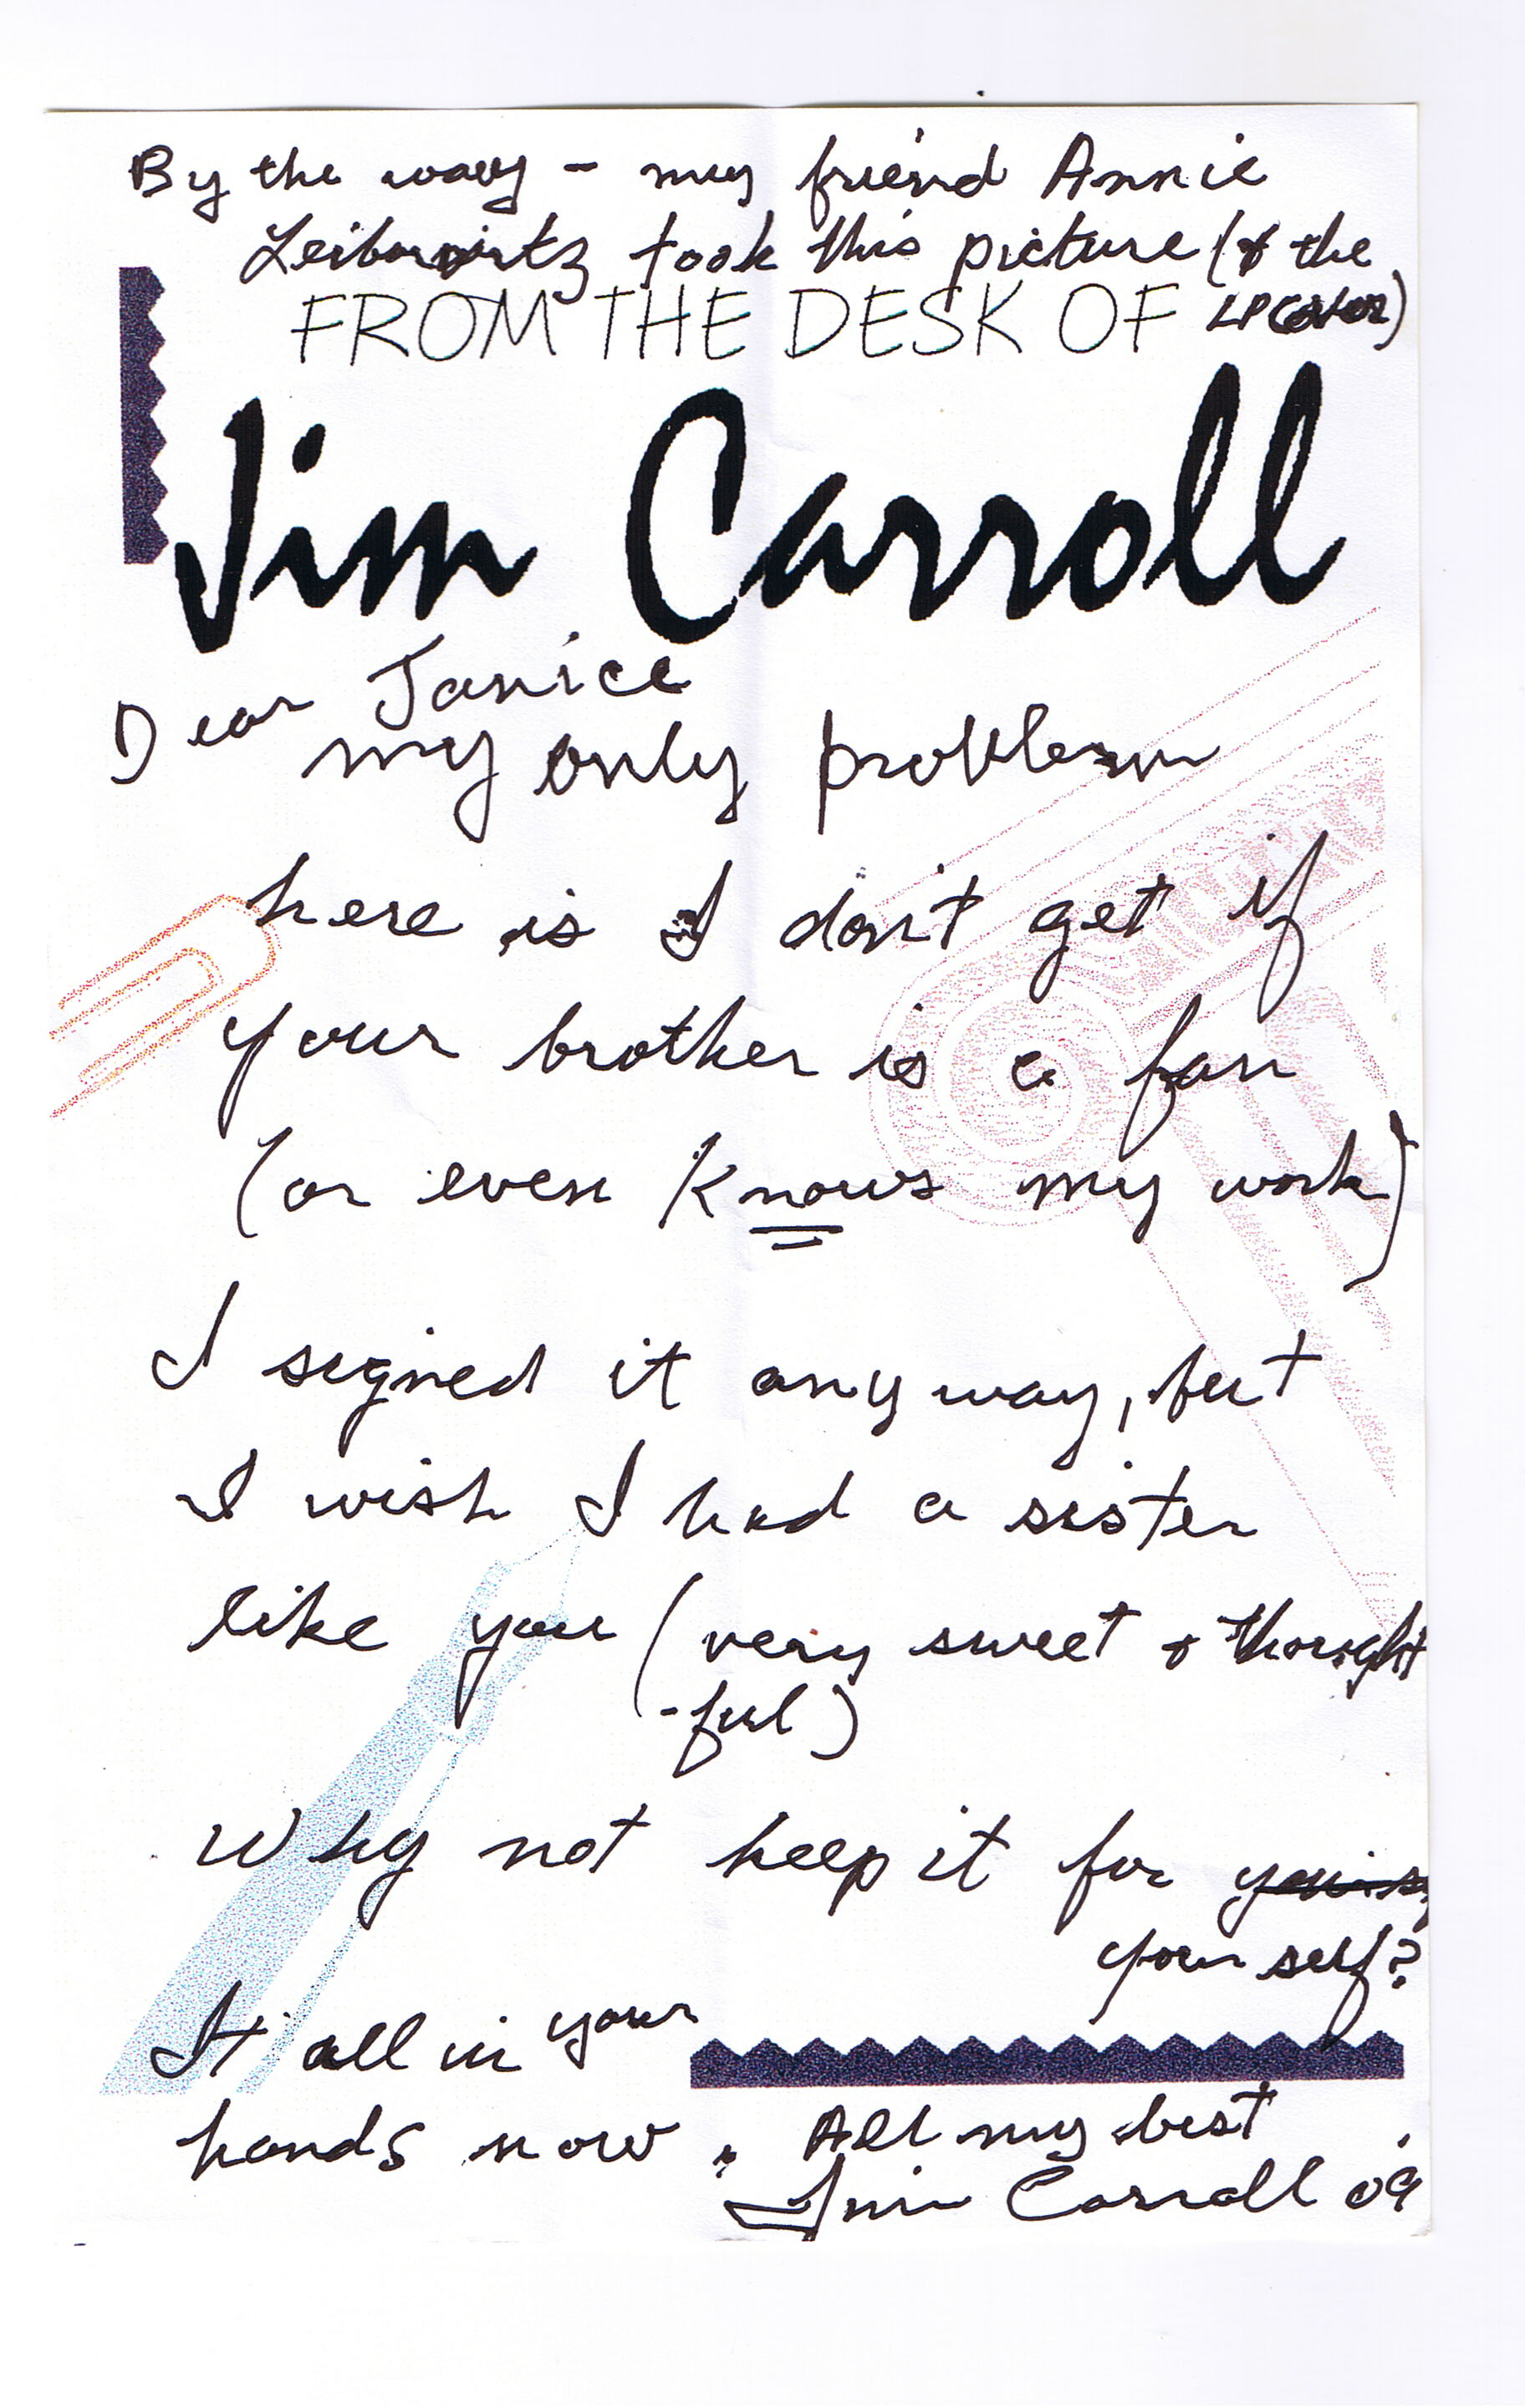 By the way - my friend Annie
Leibowitz took this picture (& the
LP cover)
FROM THE DESK OF
Jim Carroll
Dear Janice
my only problem
here is I don't get if
your brother is a fan
(or even knows my work)
I signed it anyway, but
I wish I had a sister
like you (very sweet & thought
-ful)
Why not keep it for
yourself?
It all in your
hands now. All my best
Jim Carroll 09